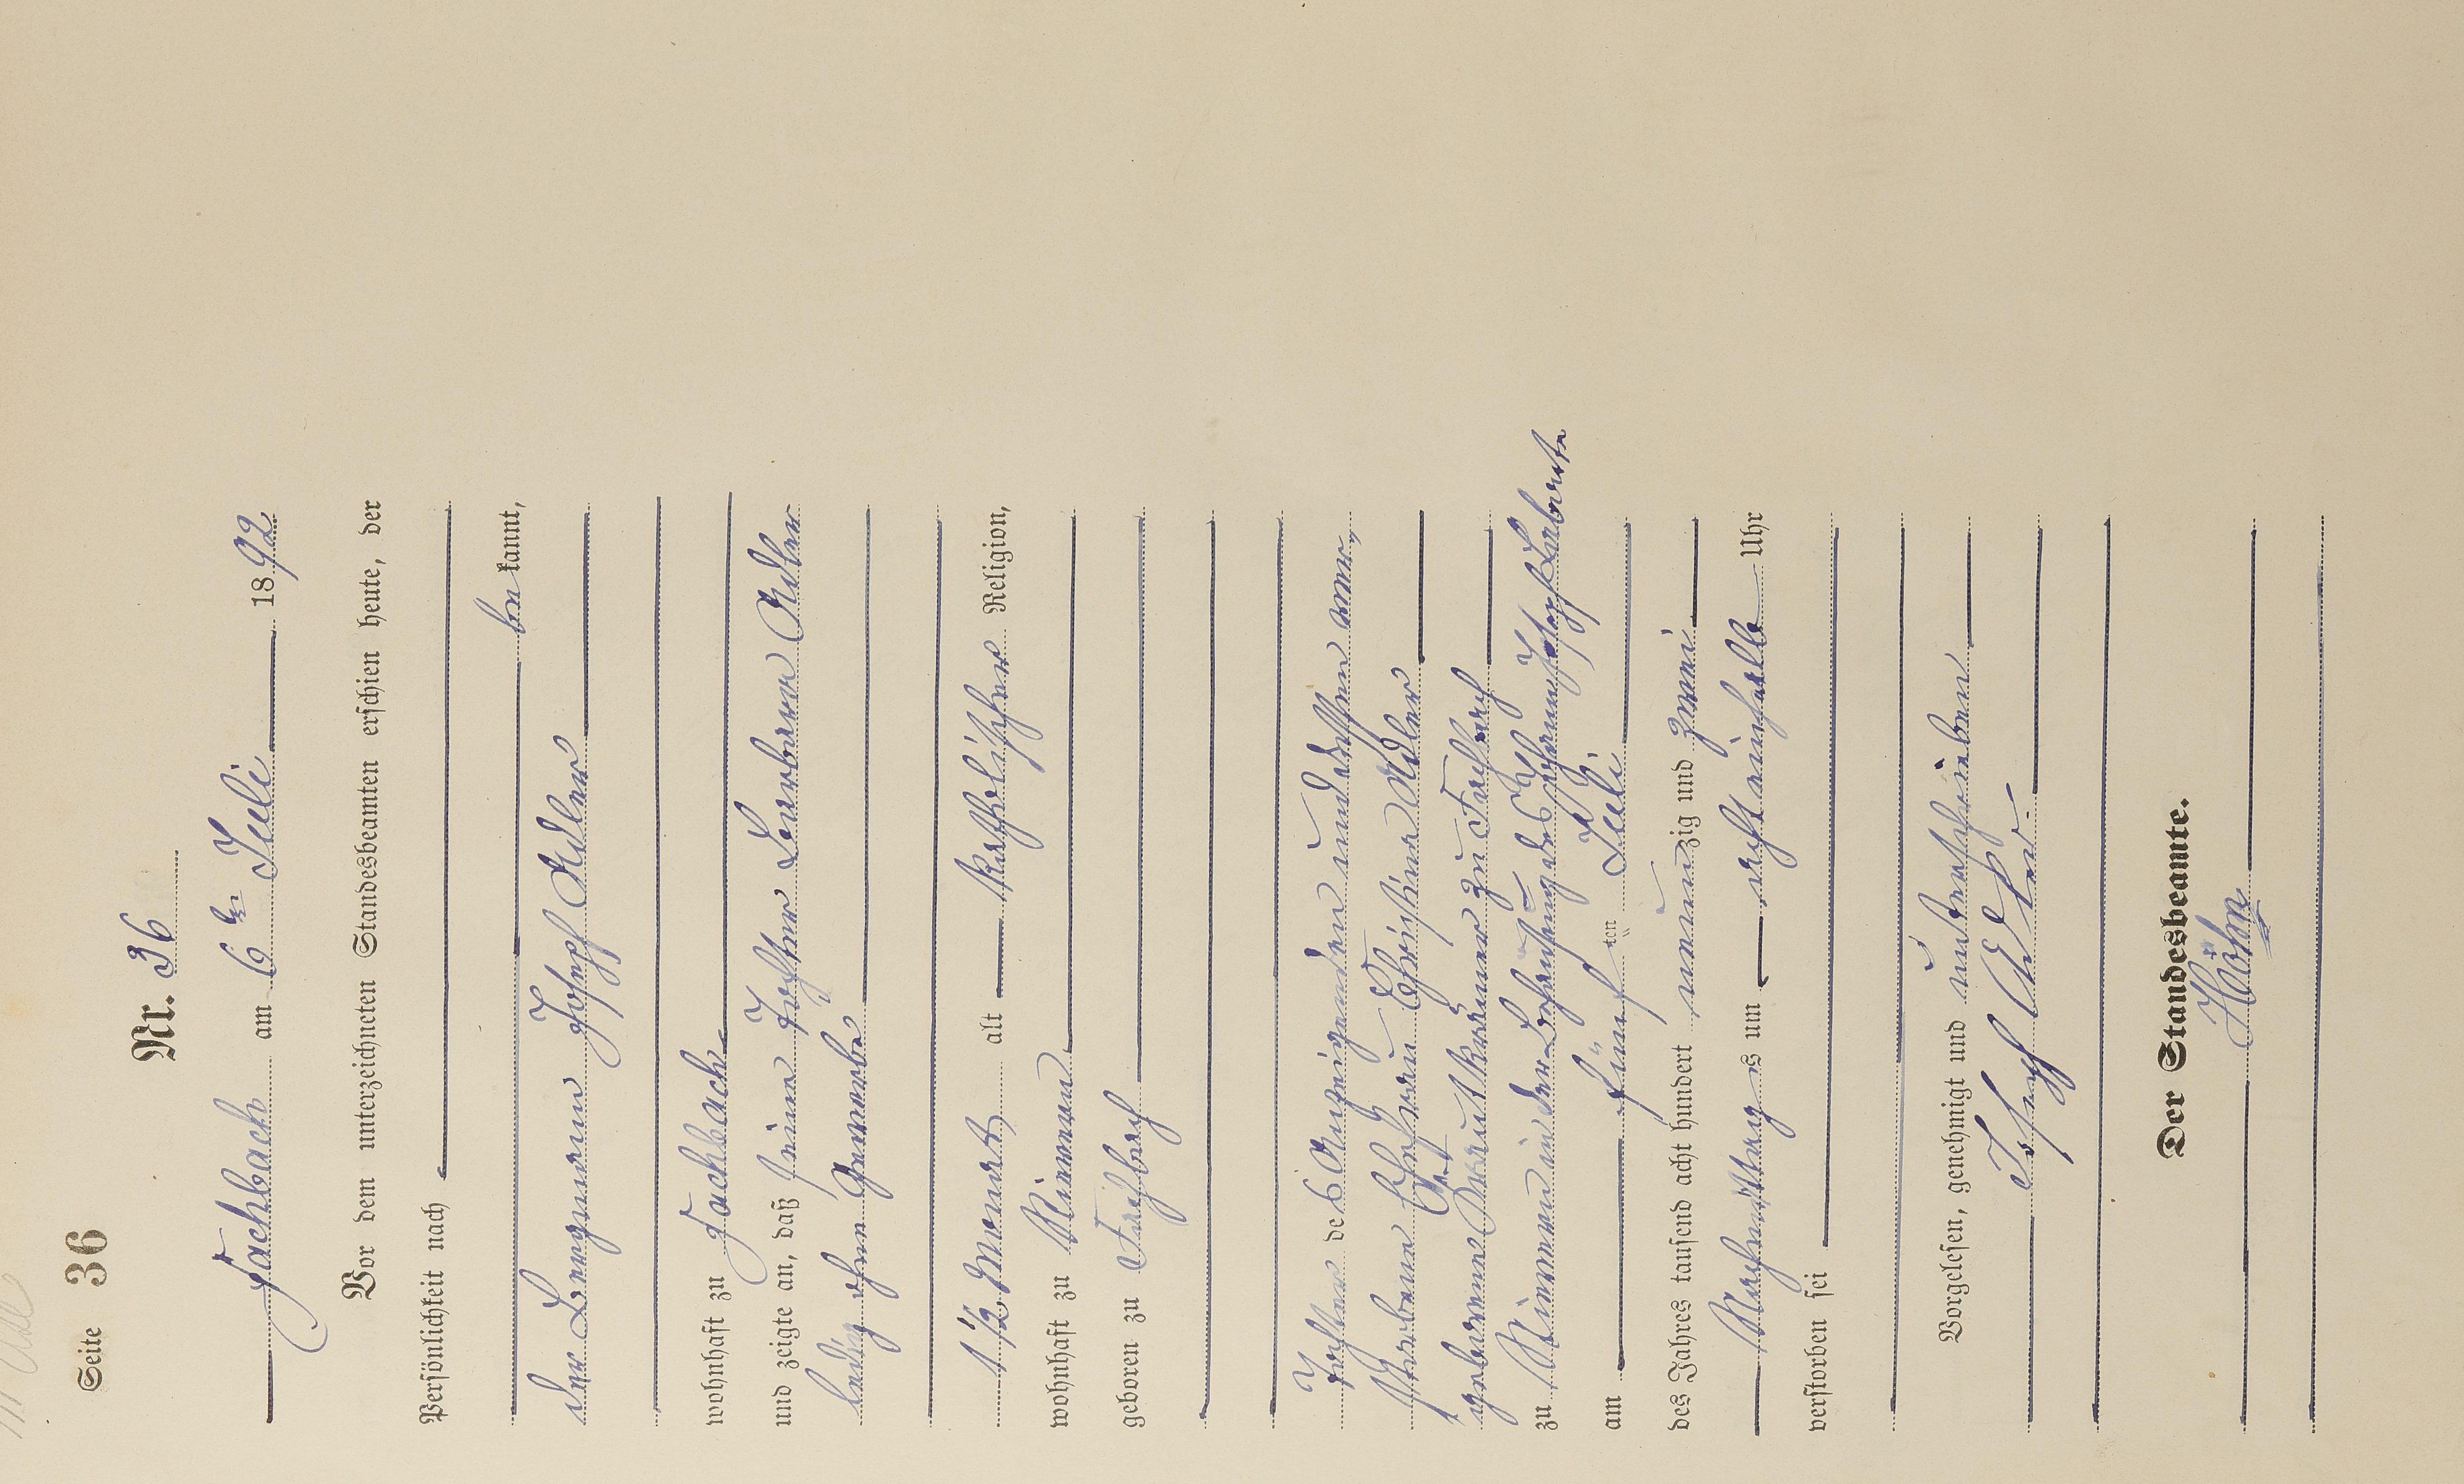 Seite 36
Nr. 36
Fachbach am 6ten Juli 1892
Vor dem unterzeichneten Standesbeamten erschien heute, der
Persönlichkeit nach
bekannt,
der Bergmann Joseph Adler
wohnhaft zu Fachbach
und zeigte an, daß seine Tochter Barbara Adler
ledig ohne Gewerbe
1 1/2 Monat alt katholischer Religion,
wohnhaft zu Nievern
geboren zu Fachbach
Tochter des Anzeigenden und dessen
verstorbenen Ehefrau Christina Adler
geborene zu Fachbach
zu Nievern in der Behausung des Joseph
am fünften Juli
des Jahres tausend acht hundert neunzig und zwei
Nachmittags um achteinhalb Uhr
verstorben sei
Vorgelesen, genehmigt und unterschrieben
Joseph Adler.
Der Standesbeamte.
Höhn